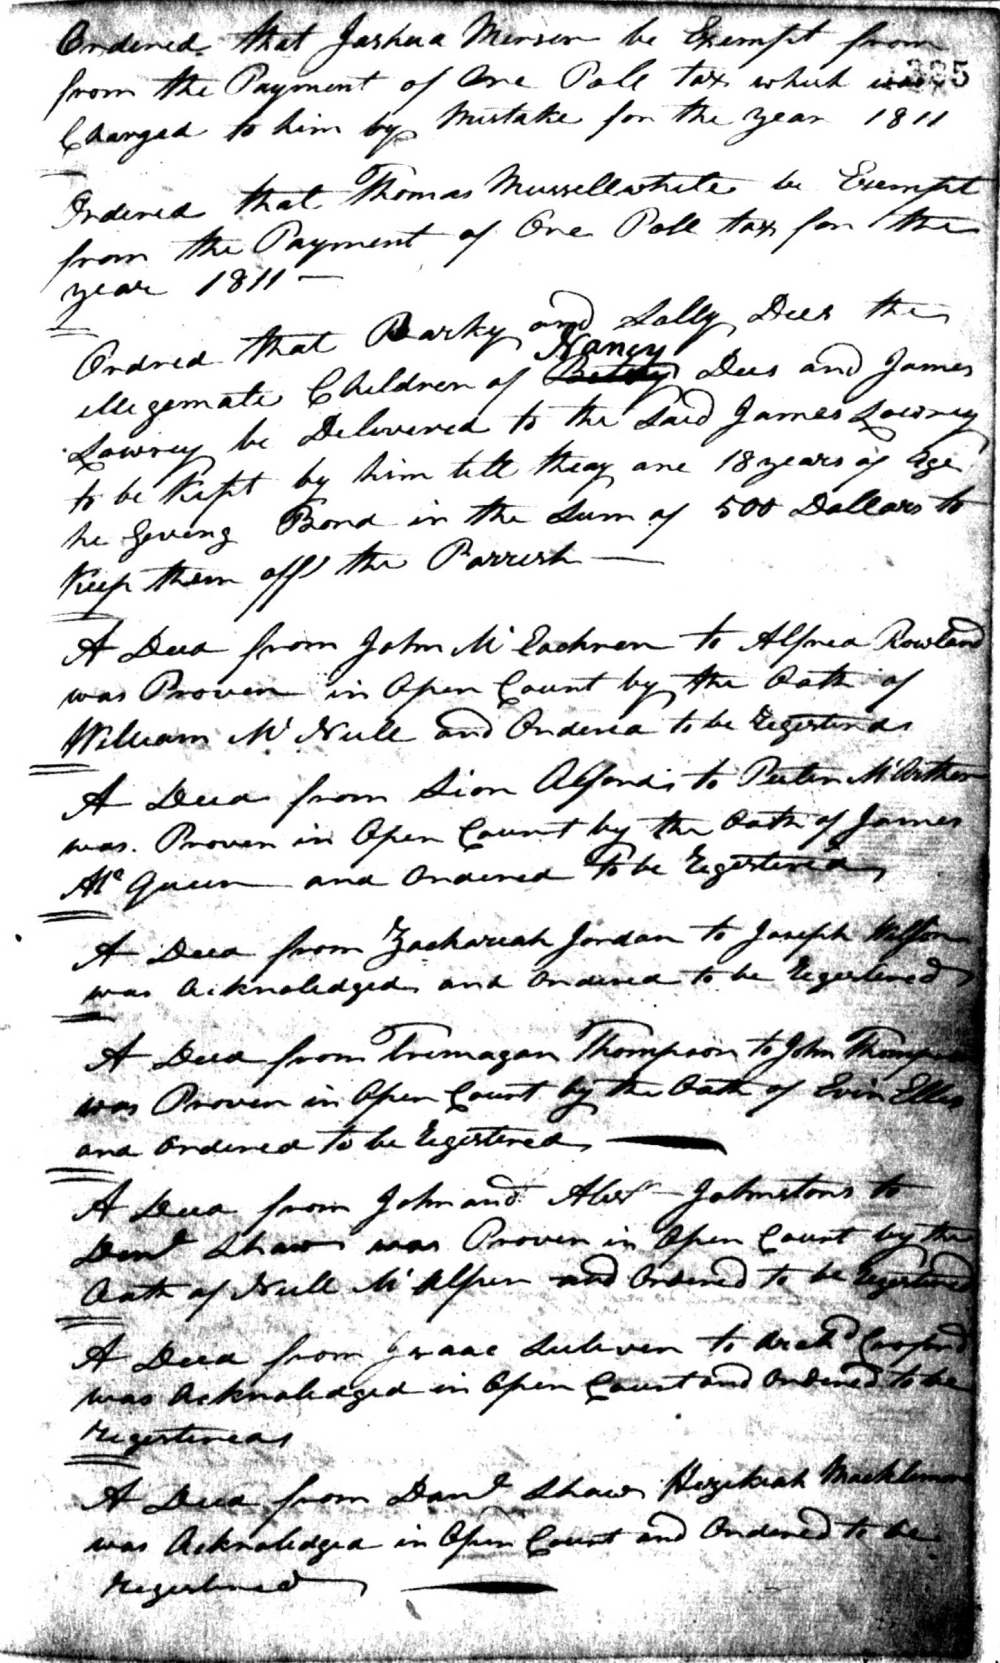 Ordered that Joshua Mercer be Exempt from
from the Payment of One Pole tax which was
Charged to him by Mistake for the year 1811
335
Ordered that Thomas Mussellwhite be Exempt
from the Payment of One Pole tax for the
year 1811 —
Ordred that Barky and Sally Dees the
illegemate Children of Betsy Nancy Dees and James
Lowrey be Delivered to the Said James Lowrey
to be Kept by him till theay are 18 years of Age
he Giveng Bond in the Sum of 500 Dollars to
Keep them off the Parrish —
A Deed from John Mc Eachren to Alfred Rowland
was Proven in Open Court by the Oath of
William Mc Neill and Ordered to be Regestered
A Deed from Sion Alford to Peter McArther
was Proven in Open Court by the Oath of James
Mc Queen and Ordered to be Regestered
A Deed from Zachariah Jordan to Joseph Wilson
was Acknoledged and Ordered to be Regestered
A Deed from Trimagan Thompson to John Thompson
was Proven in Open Court by the Oath of Evin Ellis
and Ordered to be Regestered —
A Deed from John and Alexr Johnstons to
Danl Shaw was Proven in Open Court by the
Oath of Neill Mc Alpin and Ordered to be Regestered
A Deed from Isaac Suliven to Archd
was Acknoledged in Open Court and Ordered to be
Regestered
A Deed from Danl Shaw Hezekiah
was Acknoledged in Open Court and Ordered to be
Regestered —